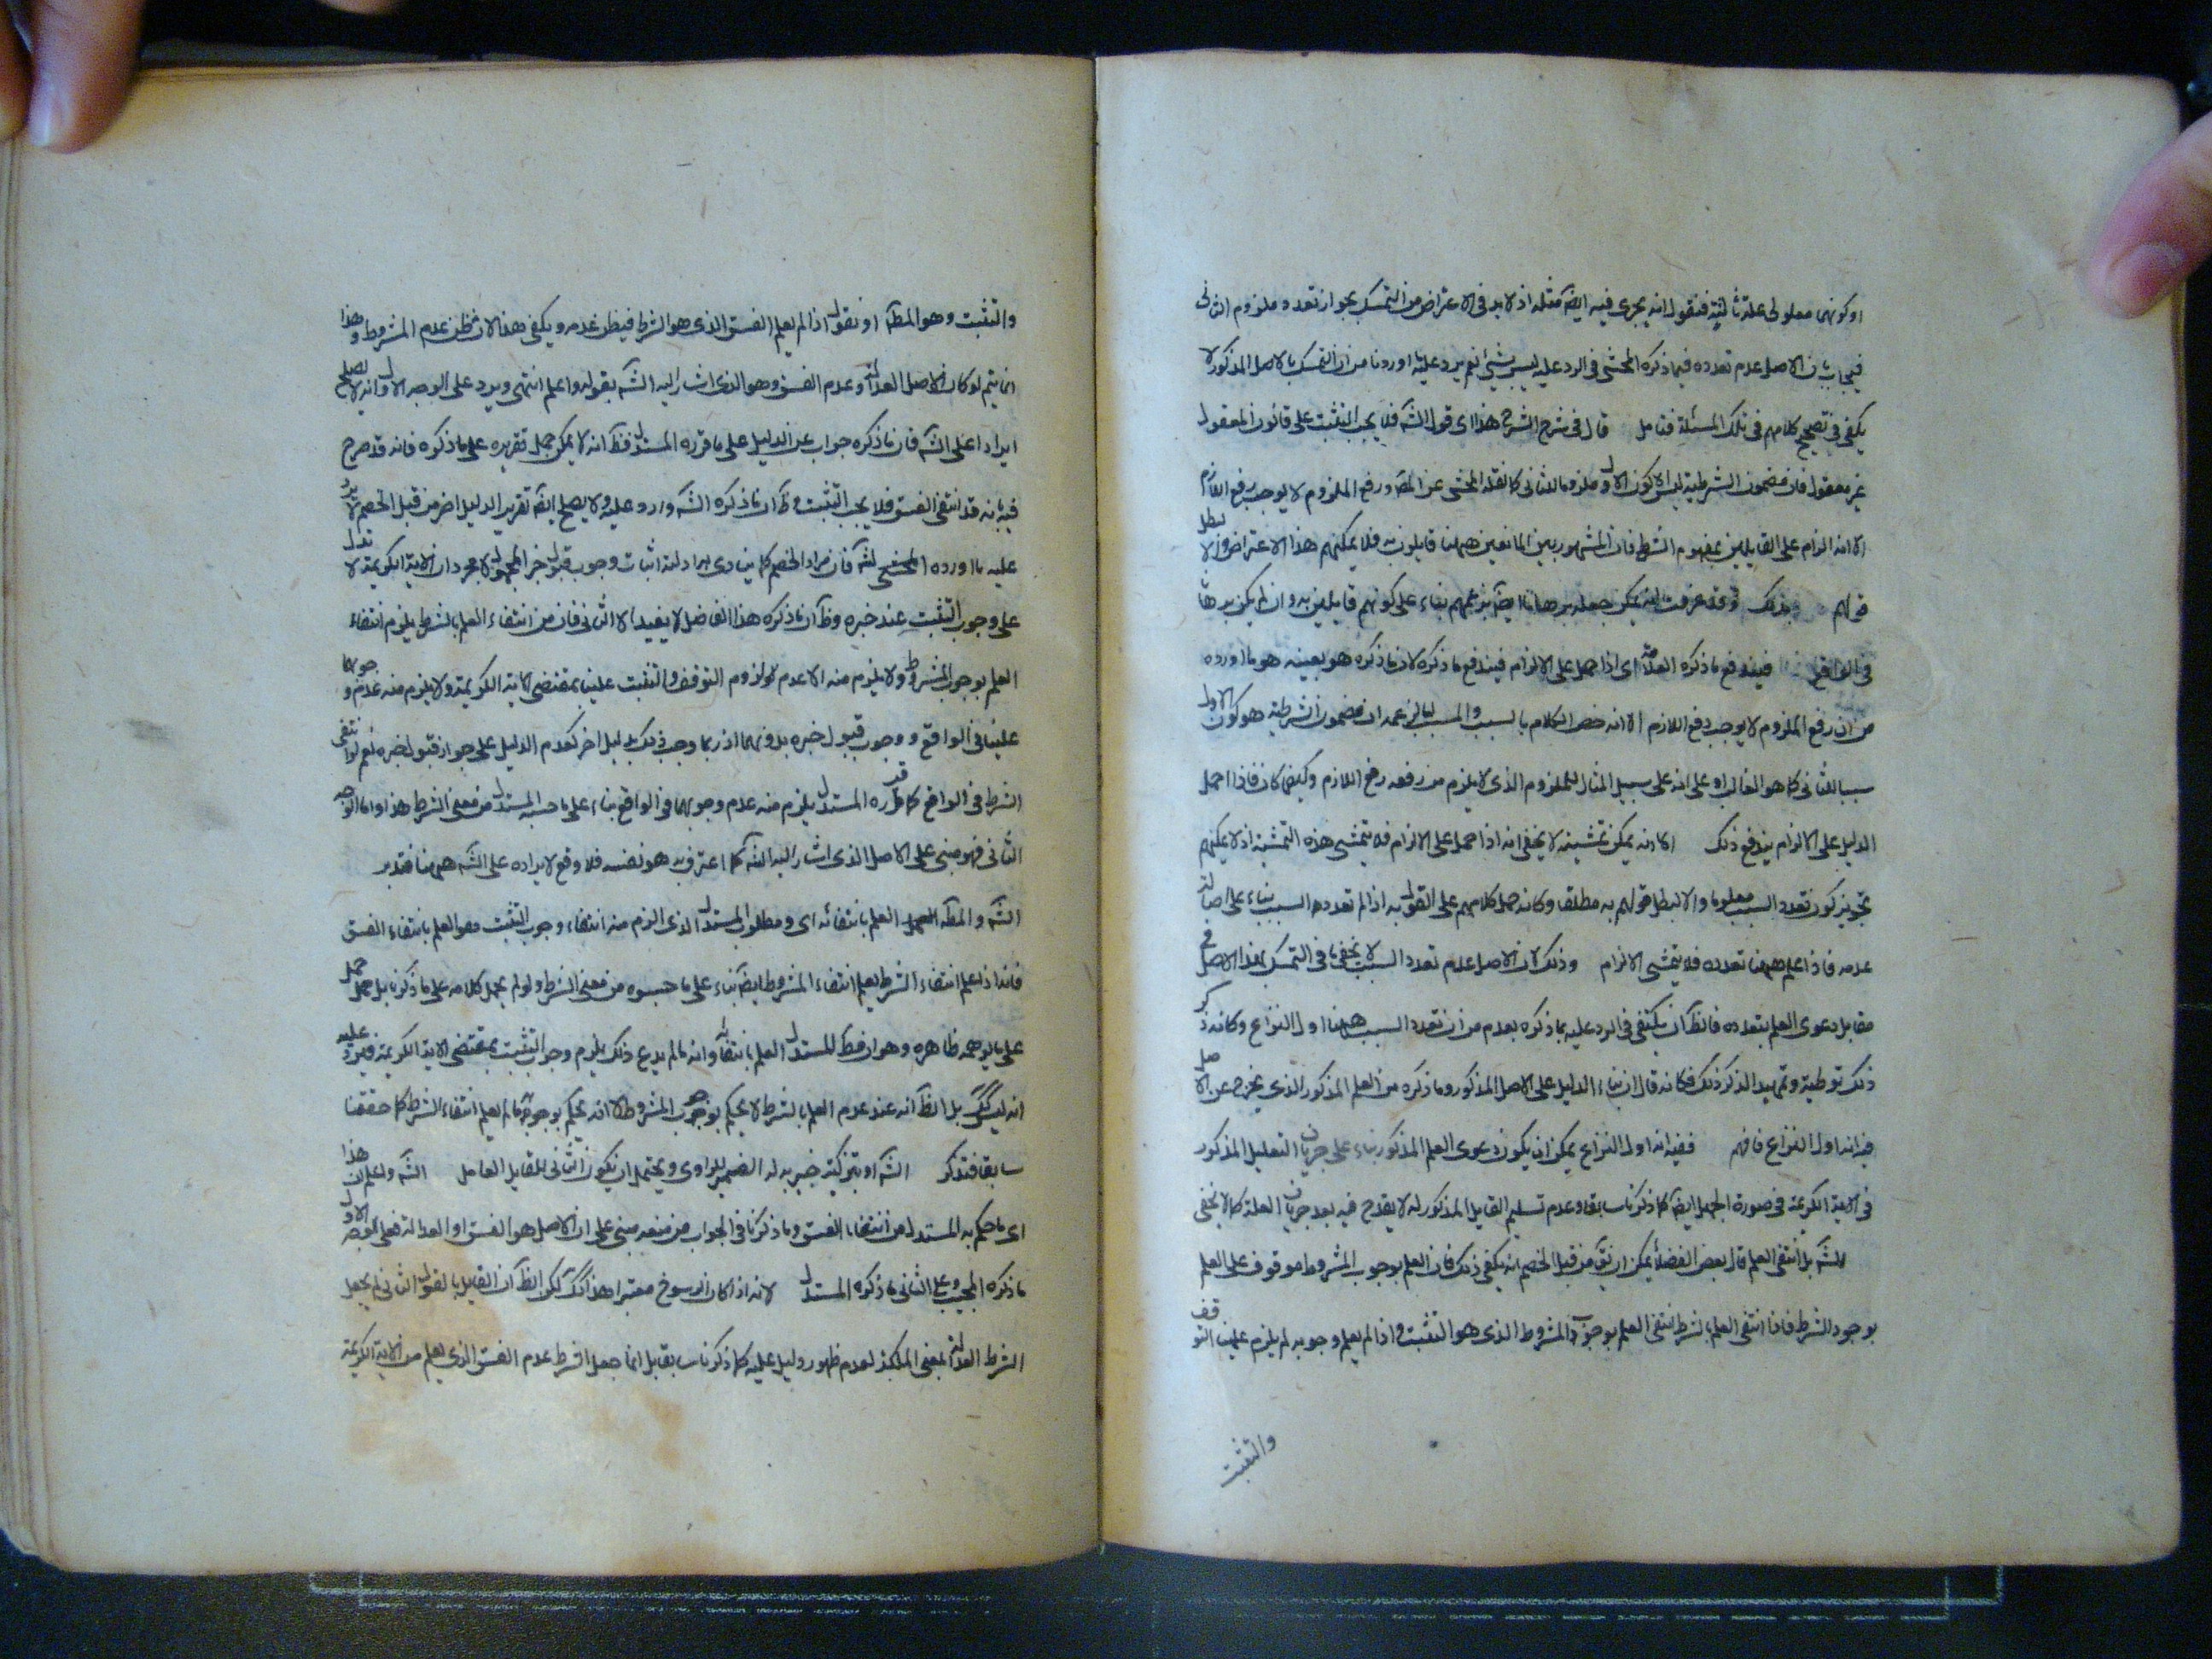 او كونهما معلولى علة ثالثة فنقول انه يجرى فيه ايضا مثله اذ لابد فى الاعتراض من التمسك بجواز تعدد ملزوم الثانى
فيجاب بان الاصل عدم تعدده فيما ذكره المحشى فى الرد عليه ليس بشىء نعم يرد عليه ما اوردنا من ان التمسك بالاصل المذكور لا
يكفى فى تصحيح كلامهم فى تلك المسئلة فتامل قال فى شرح الشرح هذا اى قول الشه فلا يجب التثبت على قانون المعقول
غير معقول فان مضمون الشرطية ليس الا كون الاول ملزوما للثانى كما نقله المحشى عن المص ورفع الملزوم لا يوجب رفع اللازم
الا انه الزام على القايلين بمفهوم الشرط فان المشهور بين المانعين ههنا قايلون به فلا يمكنهم هذا الاعتراض والا لبطل
قولهم بذلك وقد عرفت انه يمكن جعله برهانا ايضا بزعمهم بناء على كونهم قايلين به وان لم يكن برهانا
فى الواقع فيندفع ما ذكره العلامة اى اذا حمل على الالزام فيندفع ما ذكره لان ما ذكره هو بعينه هو ما اورده
من ان رفع الملزوم لا يوجب رفع اللازم الا انه خص الكلام بالسبب والمسبب لما زعمه ان مضمون الشرطية هو كون الاول
سببا للثانى كما هو الغالب او على انه على سبيل المثال للملزوم الذى لا يلزم من رفعه رفع اللازم وكيف كان فاذا حمل
الدليل على الالزام يندفع ذلك الا انه يمكن تمشيته لا يخفى انه اذا حمل على الالزام فلا يتمشى هذه التمشية اذ لا يمكنهم
تجويز كون تعدد السبب معلوما والا لبطل قولهم به مطلقا وكانه حمل كلامهم على القول به اذا لم تعدد السبب بناء على اصالة
عدمه فاذا علم ههنا تعدده فلا يتمشى الالزام وذلك لان الاصل عدم تعدد السبب لا يخفى ما فى التمسك بهذا الاصل فى
مقابل دعوى العلم بتعدده فالظ ان يكتفى فى الرد عليه بما ذكره بعده من ان تعدد السبب ههنا اول النزاع وكانه ذكر
ذلك توطية وتمهيدا لذكر ذلك فكانه قال ان بناء الدليل على الاصل المذكور وما ذكره من العلم المذكور الذى يخرج عن الاصل
فيه انه اول النزاع فافهم ففيه انه اول النزاع يمكن ان يكون دعوى العلم المذكور بناء على جريان التعليل المذكور
فى الآية الكريمة فى صورة الجهل ايضا كما ذكرنا سابقا وعدم تسليم القايل المذكور له لا يقدح فيه بعد جريان العلة كما لا يخفى
الشه بل انتفى العلم قال بعض الفضلا يمكن ان يق من قبل الخصم انه يكفى ذلك فان العلم بوجوب المشروط موقوف على العلم
بوجود الشرط فاذا انتفى العلم بالشرط انتفى العلم بوجوب المشروط الذى هو التثبت واذا لم يعلم وجوبه لم يلزم علينا التوقف
والتثبت
والتثبت وهو المط او نقول اذا لم يعلم الفسق الذى هو الشرط فيظن عدمه ويكفى هذا لان يظن عدم المشروط وهذا
انما يتم لو كان الاصل العدالة وعدم الفسق وهو الذى اشار اليه الشه بقوله واعلم انتهى ويرد على الوجه الاول انه لا يصلح
ايرادا على الشه فان ما ذكره جواب عن الدليل على ما قرره المستدل فظ انه لا يمكن حمل تقريره على ما ذكره فانه قد صرح
فيه بانه قد انتفى الفسق فلا يجب التثبت وظ ان ما ذكره الشه وارد عليه ولا يصلح ايضا تقرير الدليل اخر من قبل الخصم لا يرد
عليه ما اورده المحشى الشه فان مراد الخصم كما ينادى ايراد لته اثبات وجوب قبول خبر المجهول لا مجرد ان الآية الكريمة لا تدل
على وجوب التثبت عند خبره وظ ان ما ذكره هذا الفاضل لا يفيد الا الثانى فان من انتفاء العلم بالشرط يلزم انتفاء
العلم بوجوب المشروط ولا يلزم منه الا عدم لزوم التوقف والتثبت علينا بمقتضى الآية الكريمة ولا يلزم منه عدم وجوبهما
علينا فى الواقع ووجوب قبول خبره بدونهما اذ ربما وجب ذلك بدليل اخر كعدم الدليل على جواز قبول خبره نعم لو انتفى
الشرط فى الواقع كما قرره المستدل يلزم منه عدم وجوبهما فى الواقع بناء على ما حسبه المستدل من معنى الشرط هذا واما الوجه
الثانى فهو مبنى على الاصل الذى اشار اليه الشه كما اعترف به هو نفسه فلا وقع لايراده على الشه ههنا فتدبر
الشه والمط العلم بانتفائه اى ومطلوب المستدل الذى الزم منه انتفاء وجوب التثبت هو العلم بانتفاء الفسق
فانه اذا علم انتفاء الشرط يعلم انتفاء المشروط ايضا بناء على ما حسبوه من معنى الشرط ولو لم يحمل كلامه على ما ذكرنا بل حمل
على ما يوهمه ظاهره وهو ان مط المستدل العلم بانتفائه وانه ما لم يدع ذلك يلزم وجوب التثبت بمقتضى الآية الكريمة فيرد عليه
انه ليس كك بل الظ انه عند عدم العلم بالشرط لا يحكم بوجوب المشروط لا انه يحكم بوجوبه ما لم يعلم انتفاء الشرط كما حققنا
سابقا فتذكر الشه او بتزكية خبير به له الضمير للراوى ويحتمل ان يكون الثانى للمقابل العامل الشه واعلم ان هذا
اى ما حكم به المستدل من انتفاء الفسق وما ذكرنا فى الجواب من منعه مبنى على ان الاصل هو الفسق او العدالة فعلى الوجه الاول
ما ذكره المجيب وعلى الثانى ما ذكره المستدل لانه اذا كان الرسوخ معتبرا هذا كك لكن الظ ان القايل بالقول الثانى لم يجعل
الشرط العدالة بمعنى الملكة لعدم ظهور دليل عليه كما ذكرنا سابقا بل انما جعل الشرط عدم الفسق الذى يعلم من الآية الكريمة